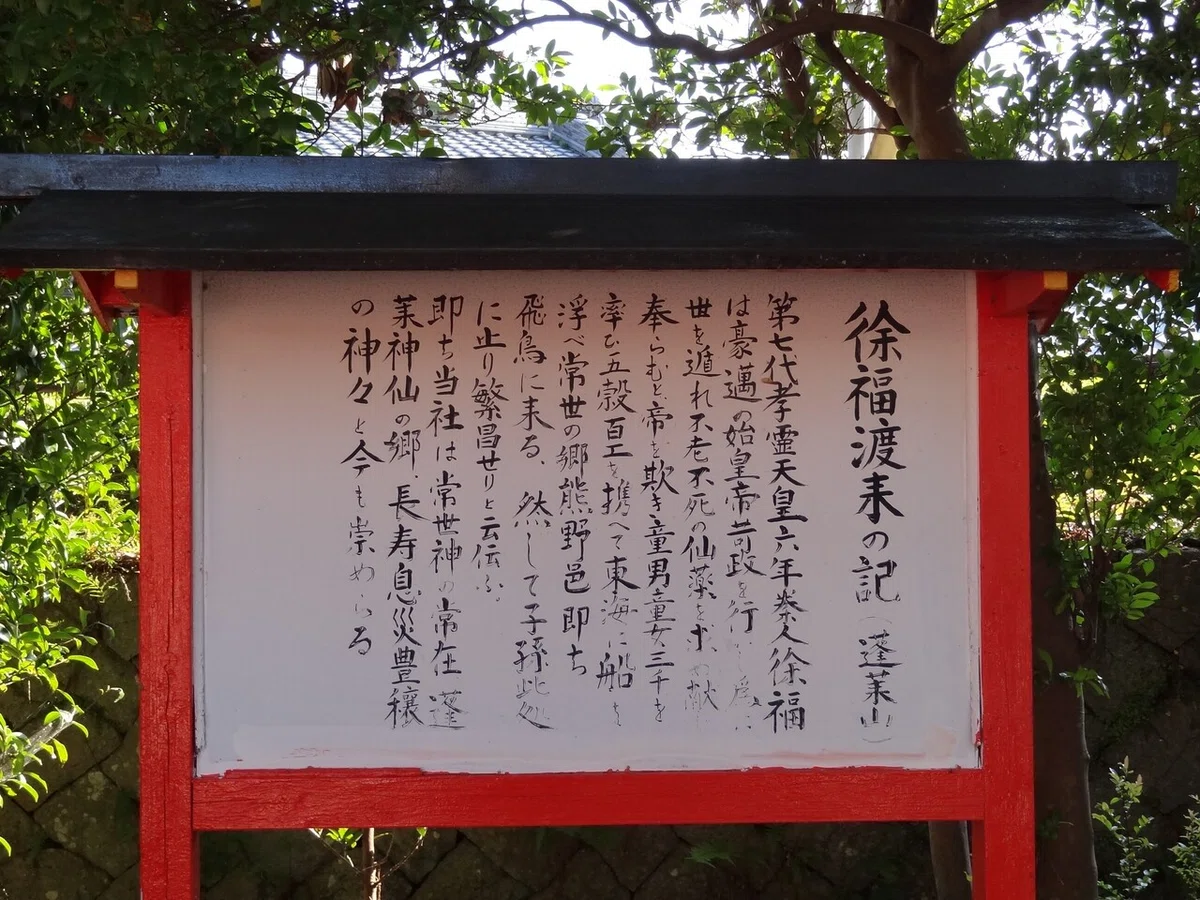 徐福渡来の記（蓬莱山）
第七代孝霊天皇六年秦人徐福
は豪邁の始皇帝苛政を行い 為に
世を遁れ不老不死の仙薬を求め献
奉らむと帝を欺き童男童女三千を
率ひ五穀百工を携へて東海に船を
浮べ常世の郷熊野邑即ち
飛鳥に来る、然して子孫此処
に止り繁昌せりと云伝ふ。
即ち当社は常世神の常在 蓬
莱神仙の郷、長寿息災豊穣
の神々と今も崇めらる